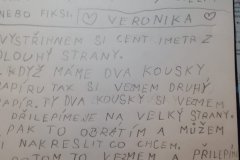 NEBO FIKSI. ♡ VERONIKA ♡
VYSTŘIHNEM SI CENT IMETR Z
DLOUHÝ STRANY.
KDYŽ MÁME DVA KOUSKY
PAPÍRU TAK SI VEZMEM DRUHÝ
PAPÍR. TY DVA KOUSKY SI VEZMEM
PŘILEPÍME NA VELKÝ STRANY.
PAK TO OBRÁTÍM A MŮŽEM
SI NAKRESLIT CO CHCEM.
POTOM TO VEZMEM PŘILEPÍM